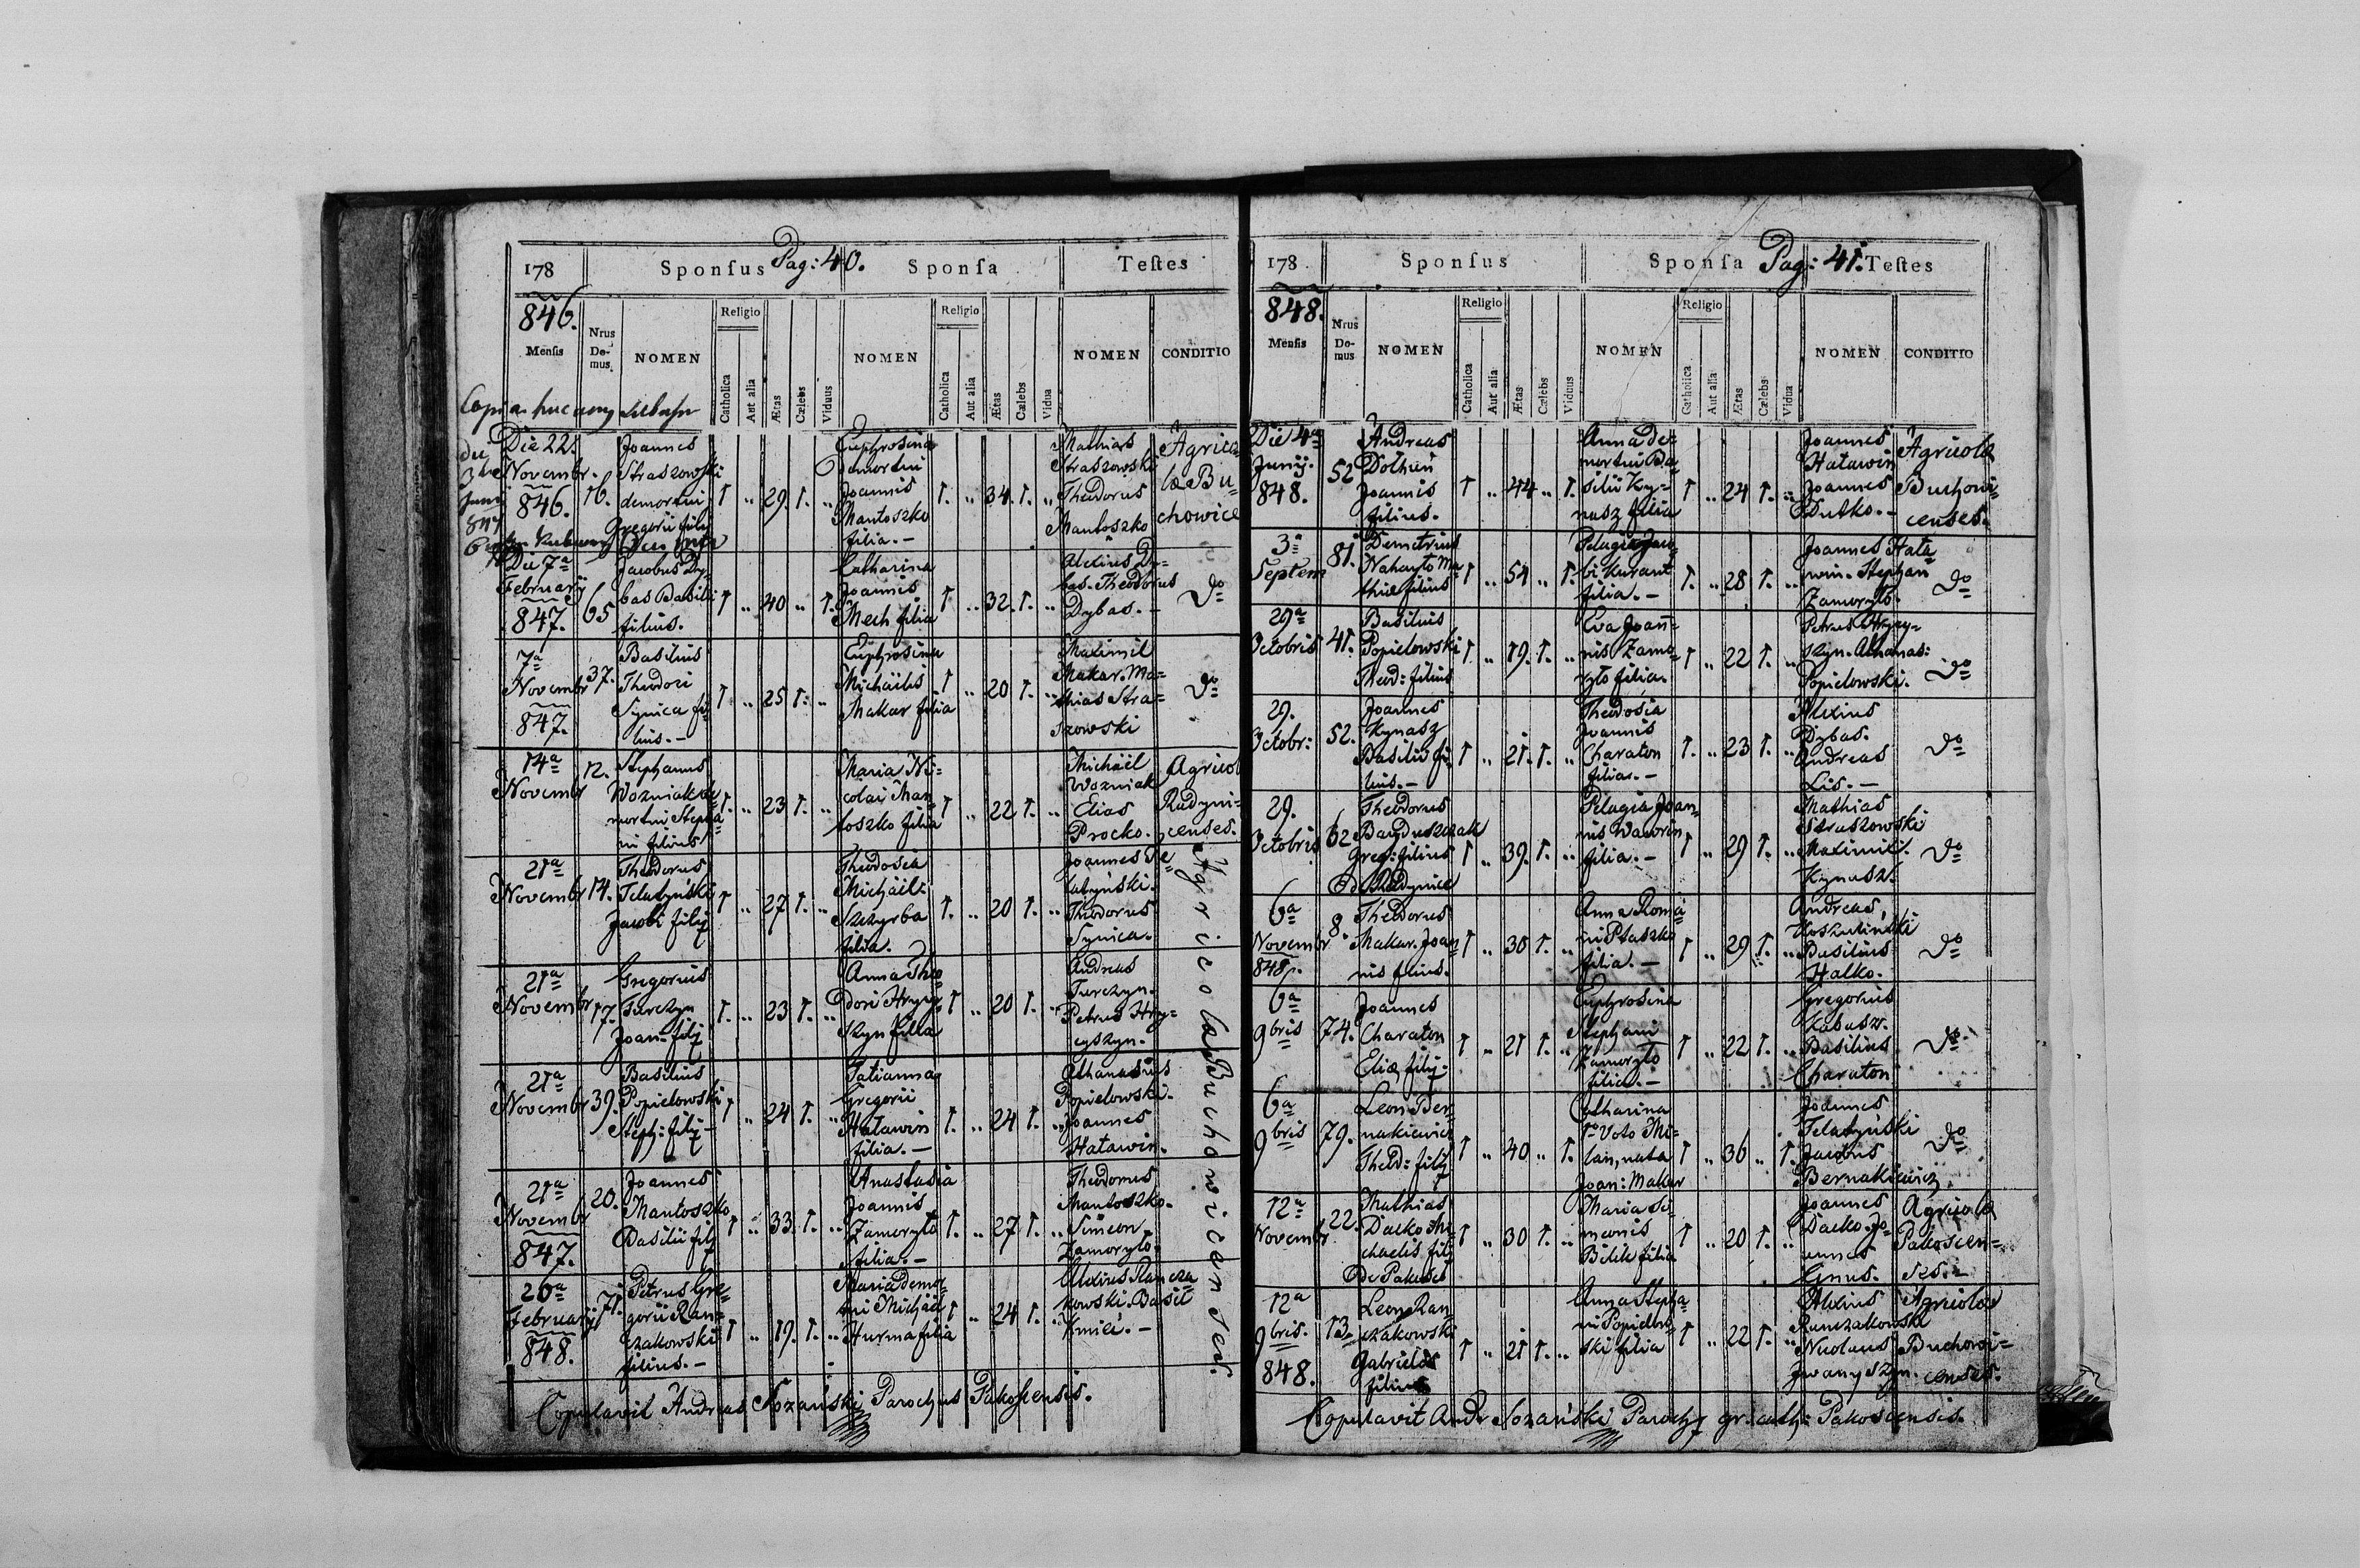 Pag: 40.
178 Sponsus Sponsa Testes
846.
Mensis Nrus Domus. NOMEN Religio Catholica Aut alia Ætas Cælebs Viduus NOMEN Religio Catholica Aut alia Ætas Cælebs Vidua NOMEN CONDITIO
Die 22.
Novembr.
846.
16.
Joannes
Straszowski
demortui
Gregorii filij
† „ 29. †. „
Euphrosina
demortui
Joannis
Mantoszko
filia.-
†. „ 34. †. „
Mathias
Straszowski
Theodorus
Mantoszko
Agrico-
læ Bu-
chowice
Die 7a
Februarij
847.
65
Jacobus Dy-
bas Basilii
filius.
† „ 40 „ †.
Catharina
Joannis
Mech filia
† „ 32. †. „
Alexius Dy-
bas. Theodorus
Dybas.-
do
7a
Novembr
847.
37.
Basilius
Theodori
Synica fi-
lius.-
† „ 25 †. „
Euphrosina
Michäelis
Makar filia
† „ 20 †. „
Maximil
Makar. Ma-
thias Stra-
szowski
do
14a
Novembr
12.
Stephanus
Wozniak de-
mortui Stepha-
ni filius
†. „ 23 †. „
Maria Ni-
colai Man-
toszko filia
† „ 22 †. „
Michäel
Wozniak
Elias
Procko.
Agricol
Radyni-
censes.
21a
Novembr
14.
Theodorus
Telatyński
Jacobi filij
† „ 27 †. „
Theodosia
Michäel:
Szczyrba
filia.
†. „ 20 †. „
Joannes Te
latyński.
Theodorus
Synica.
Agricolæ Buchowicenses.
21a
Novembr
17.
Gregorius
Turczyn
Joan: filij
†. „ 23 †. „
Anna Theo-
dori Hrycy-
szyn filia
† „ 20 †. „
Andreas
Turczyn.
Petrus Hry-
cyszyn.
21a
Novembr
39.
Basilius
Popielowski
Steph: filij
† „ 24 †. „
Tatianna
Gregorii
Hatawin
filia.-
†. „ 24 †. „
Athanasius
Popielowski.
Joannes
Hatawin.
21a
Novembr
847.
20.
Joannes
Mantoszko
Basilii filij
† „ 33. †. „
Anastasia
Joannis
Zamoryto
filia.-
†. „ 27 †. „
Theodorus
Mantoszko.
Simeon
Zamoryto.
26a
Februarij
848.
71.
Petrus Gre-
gorii Ran-
czakowski
filius.-
† „ 19. †. „
Maria demor-
tui Michäel
Hurma filia
† „ 24 †. „
Alexius Rancza
kowski. Basil
Kmit.-
Copulavit Andreas Sozański Parochus Pakostensis.
Pag: 41.
178 Sponsus Sponsa Testes
848.
Mensis Nrus Domus NOMEN Religio Catholica Aut alia Ætas Cælebs Viduus NOMEN Religio Catholica Aut alia Ætas Cælebs Vidua NOMEN CONDITIO
Die 4a
Junij.
848.
52
Andreas
Joannis
filius.
† „ 44 „ †.
Anna de-
mortui Ba-
silii Ky-
nasz filia
† „ 24 †. „
Joannes
Hatawin
Joannes
Dutko.-
Agricolæ
Buchowi-
censes.
3a
Septem
81.
Demetrius
Nahayto Ma-
thiæ filius
† „ 54 „ †.
Pelagia Jaco-
bi Kurant
filia.-
†. „ 28 †. „
Joannes Hata
win. Stephan
Zamoryto.
do
29a
Octobris
41.
Basilius
Popielowski
Theod: filius
† „ 19. †. „
Eva Joan-
nis Zamo-
ryto filia.
† „ 22 †. „
Petrus Hrycy-
szyn. Athanas:
Popielowski.
do
29.
Octobr:
52.
Joannes
Kynasz
Basilii fi-
lius.-
† „ 21. †. „
Theodosia
Joannis
Charaton
filia.-
†. „ 23 †. „
Alexius
Dybas.
Andreas
Lis.-
do
29.
Octobris
62
Theodorus
Greg: filius
de Radynice
† „ 39. †. „
Pelagia Joan-
nis Wawrin
filia.-
† „ 29 †. „
Mathias
Straszowski
Maximil.
Kynasz.
do
6a
Novembr
848.
8.
Theodorus
Makar. Joan-
nis filius.
† „ 30 †. „
Anna Roma-
ni Ptaszko
filia.-
† „ 29 †. „
Andreas,
Basilius
Halko.
do
6a
9bris
74.
Joannes
Charaton
Eliæ filij.
† „ 21 †. „
Euphrosina
Stephani
Zamoryto
filia.-
† „ 22 †. „
Gregorius
Basilius
Charaton
do
6a
9bris
79.
Leon Ber-
nakiewicz
Theod: filij
† „ 40 „ †.
Catharina
1o Voto Mi-
lan, nata
Joan: Makar
† „ 36 „ †.
Joannes
Telatyński
Jacobus
Bernakiewicz
do
12a
Novembr
22.
Mathias
Dacko Mi-
chaelis filij
de Pakość
† „ 30 †. „
Maria Si-
meonis
filia
† „ 20 †. „
Joannes
Dacko. Jo-
annes
Gnus.
Agricolæ
Pakoscen-
ses.-
12a
9bris.
848.
13.
Leon Ran-
czakowski
Gabrielis
filius
† „ 21 †. „
Anna Stepha-
ni Popielow-
ski filia
† „ 22 †. „
Alexius
Ranczakowski
Nicolaus
Jwanyszyn.
Agricolæ
Buchowi-
censes.
Copulavit And: Sozański Paroch: gr: cath: Pakoscensis.